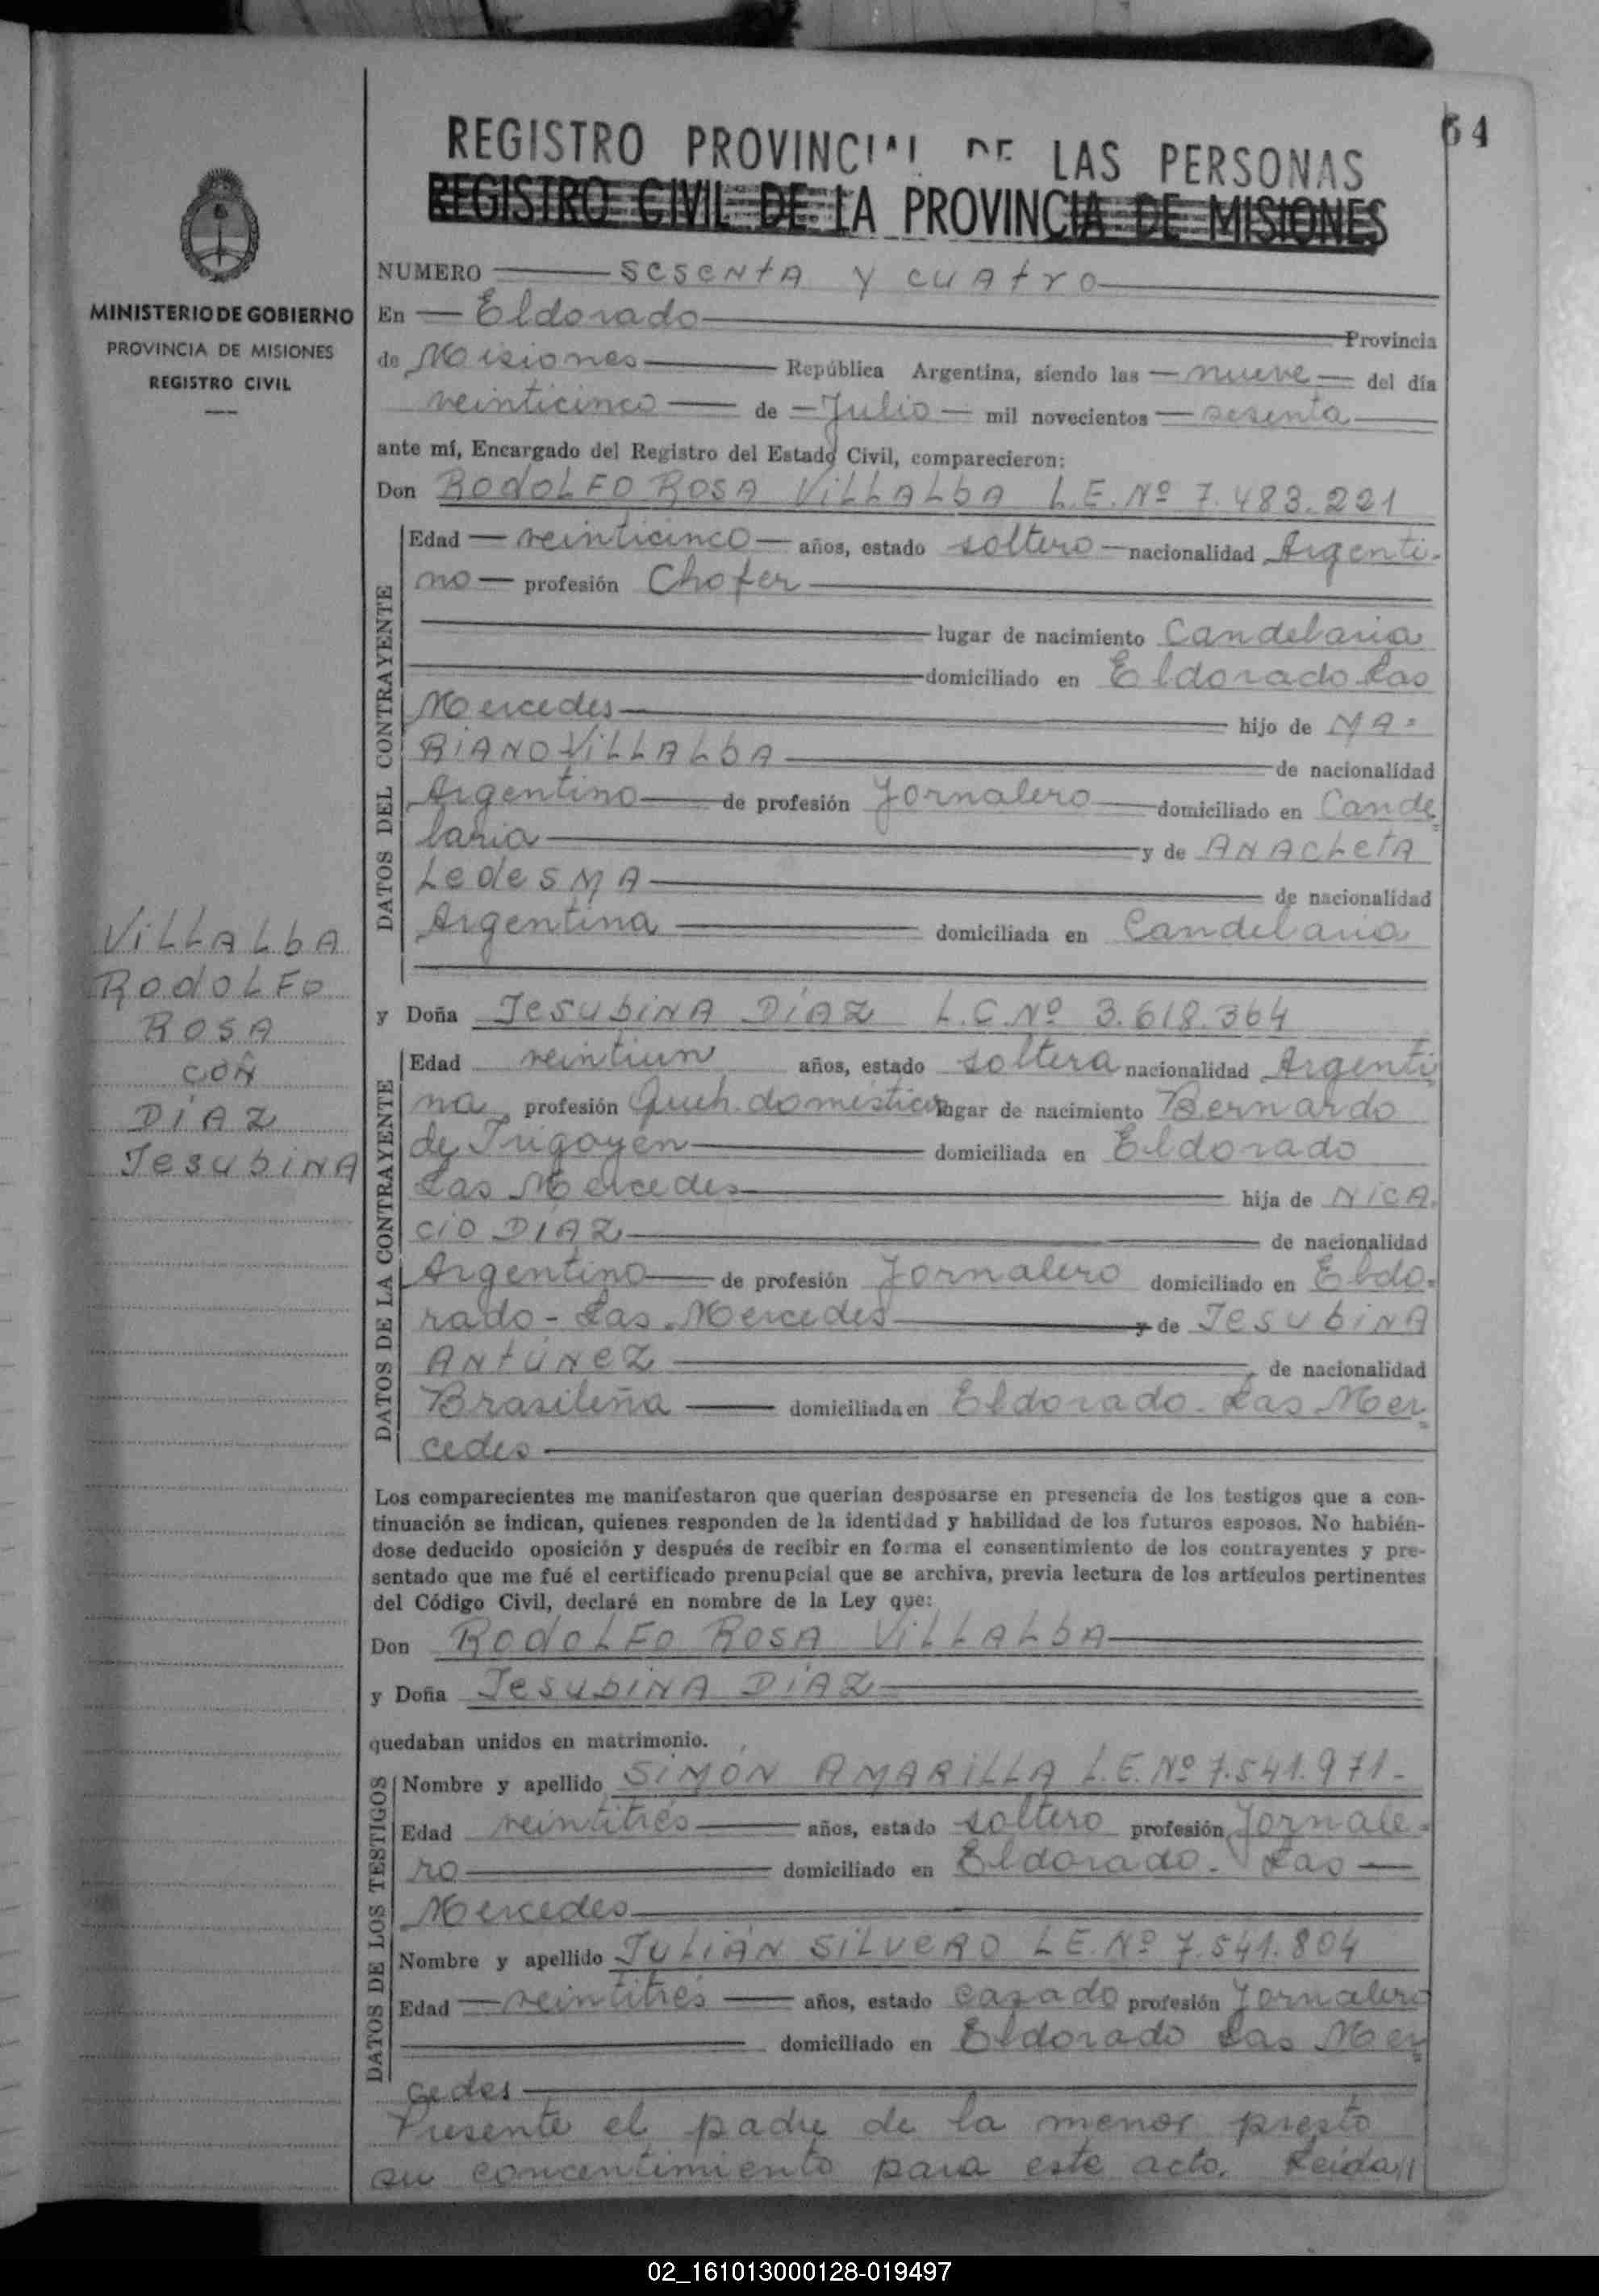 64
REGISTRO PROVINCIAL DE LAS PERSONAS
REGISTRO CIVIL DE LA PROVINCIA DE MISIONES
MINISTERIO DE GOBIERNO
PROVINCIA DE MISIONES
REGISTRO CIVIL
VILLALBA
RODOLFO
ROSA
CON
DÍAZ
JESUBINA
NUMERO sesenta y cuatro
En Eldorado Provincia
de Misiones República Argentina, siendo las nueve del día
veinticinco de Julio mil novecientos sesenta
ante mí, Encargado del Registro del Estado Civil, comparecieron:
Don RODOLFO ROSA VILLALBA L.E. Nº 7.483.221
DATOS DEL CONTRAYENTE
Edad veinticinco años, estado soltero nacionalidad Argenti-
no profesión Chofer
lugar de nacimiento Candelaria
domiciliado en Eldorado Las
Mercedes hijo de MA-
RIANO VILLALBA de nacionalidad
Argentino de profesión Jornalero domiciliado en Cande-
laria y de ANACLETA
LEDESMA de nacionalidad
Argentina domiciliada en Candelaria
y Doña JESUBINA DÍAZ L.C. Nº 3.618.364
DATOS DE LA CONTRAYENTE
Edad veintiun años, estado soltera nacionalidad Argenti
na profesión Queh. domésticos lugar de nacimiento Bernardo
de Irigoyen domiciliada en Eldorado
Las Mercedes hija de NICA-
CIO DÍAZ de nacionalidad
Argentino de profesión Jornalero domiciliado en Eldo-
rado - Las Mercedes y de JESUBINA
ANTÚNEZ de nacionalidad
Brasileña domiciliada en Eldorado - Las Mer-
cedes
Los comparecientes me manifestaron que querian desposarse en presencia de los testigos que a con-
tinuación se indican, quienes responden de la identidad y habilidad de los futuros esposos. No habién-
dose deducido oposición y después de recibir en forma el consentimiento de los contrayentes y pre-
sentado que me fué el certificado prenupcial que se archiva, previa lectura de los artículos pertinentes
del Código Civil, declaré en nombre de la Ley que:
Don RODOLFO ROSA VILLALBA
y Doña JESUBINA DÍAZ
quedaban unidos en matrimonio.
DATOS DE LOS TESTIGOS
Nombre y apellido SIMÓN AMARILLA L.E. Nº 7.541.971-
Edad veintitrés años, estado soltero profesión Jornale-
ro domiciliado en Eldorado - Las
Mercedes
Nombre y apellido JULIÁN SILVERO L.E. Nº 7.541.804
Edad veintitrés años, estado casado profesión Jornalero
domiciliado en Eldorado Las Mer-
cedes
Presente el padre de la menor presto
su concentimiento para este acto. Leída//
02_161013000128-019497